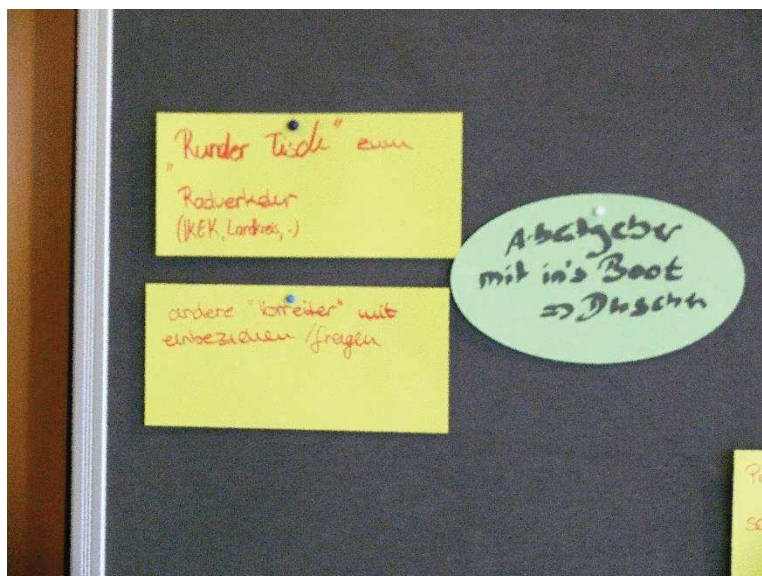 „Runder Tisch" zum
Radverkehr
(IKEK, Landkreis, ..)
andere "Vorreiter" mit
einbeziehen / fragen
Arbeitgeber
mit in's Boot
=> Duschen